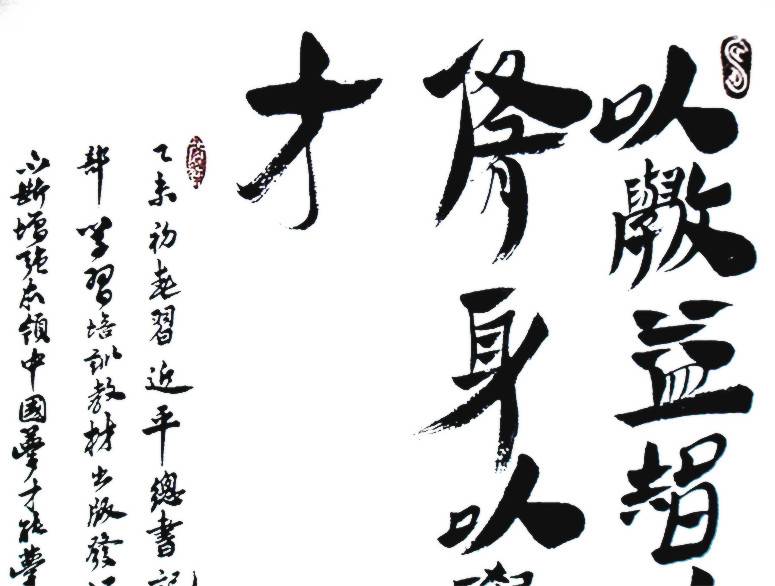 以斆益智
脩身以
才
乙未初春習近平總書記
部学習培訓教材出版發
不斷增强本領中國夢才能夢